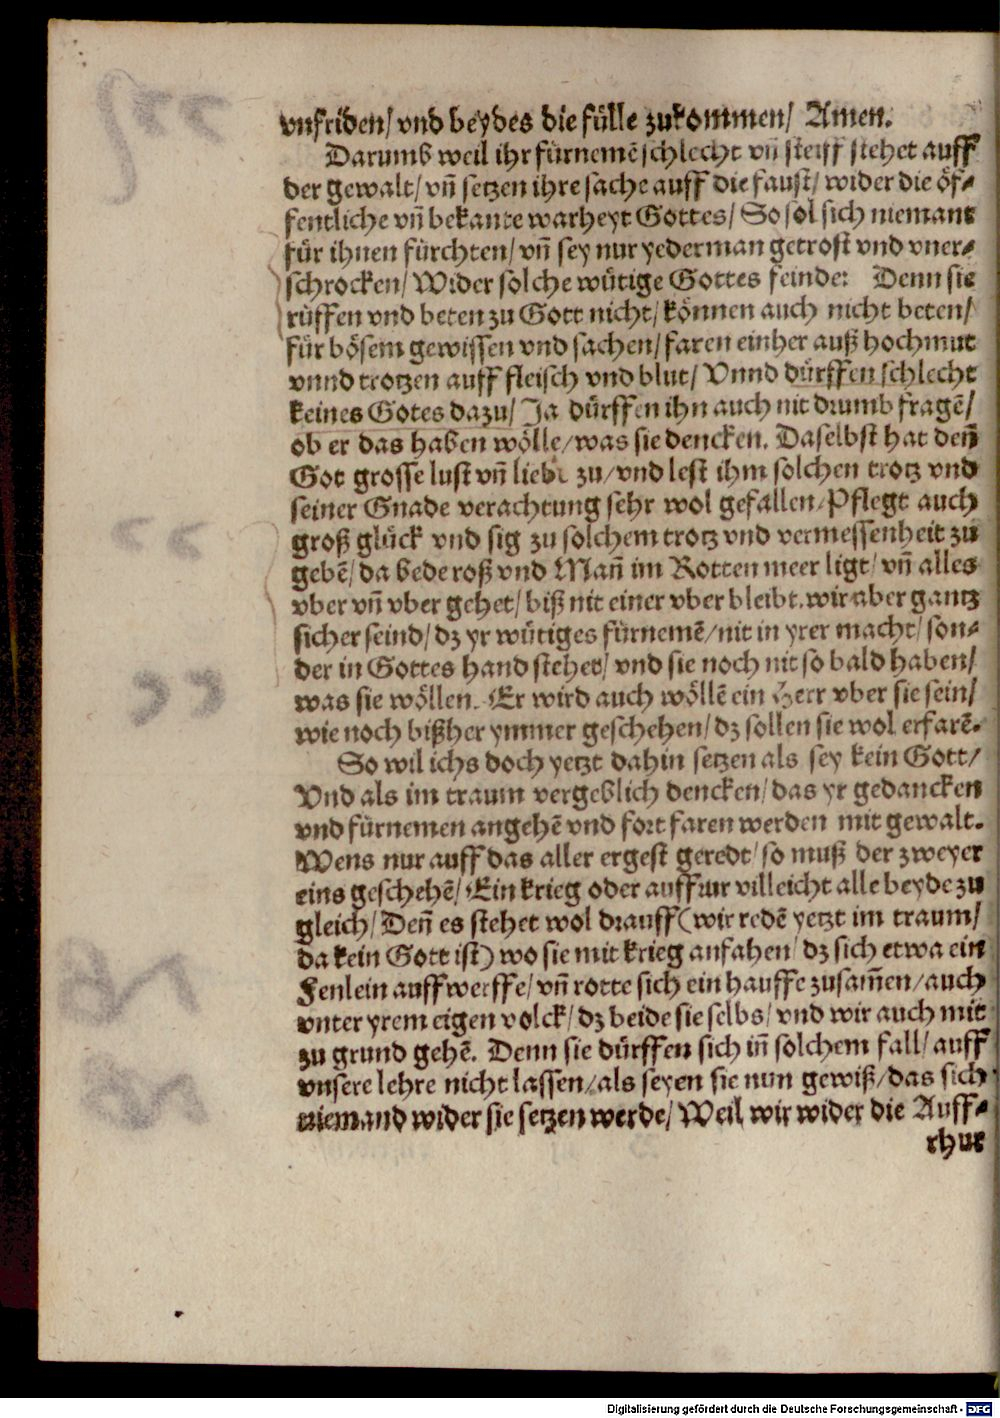 vnfriden/ vnd beydes die fülle zukommen/ Amen.
Darumb weil ihr fürnemē schlecht vn̄ steiff stehet auff
der gewalt/ vn̄ setzen ihre sache auff die faust/ wider die öf⸗
fentliche vn̄ bekante warheyt Gottes/ So sol sich niemant
für ihnen fürchten/ vn̄ sey nur yederman getrost vnd vner⸗
schrocken/ Wider solche wütige Gottes feinde: Denn sie
rüffen vnd beten zu Gott nicht/ können auch nicht beten/
für bösem gewissen vnd sachen/ faren einher auß hochmut
vnnd trotzen auff fleisch vnd blut/ Vnnd dürffen schlecht
keines Gotes dazu/ Ja dürffen ihn auch nit drumb fragē/
ob er das haben wölle/ was sie dencken. Daselbst hat den̄
Got grosse lust vn̄ liebe zu/ vnd lest ihm solchen trotz vnd
seiner Gnade verachtung sehr wol gefallen/ Pflegt auch
groß glück vnd sig zu solchem trotz vnd vermessenheit zu
gebē/ da bede roß vnd Man̄ im Rotten meer ligt/ vn̄ alles
vber vn̄ vber gehet/ biß nit einer vber bleibt. wir aber gantz
sicher seind/ dz yr wütiges fürnemē/ nit in yrer macht/ son⸗
der in Gottes hand stehet/ vnd sie noch nit so bald haben/
was sie wöllen. Er wird auch wöllē ein Herr vber sie sein/
wie noch bißher ymmer geschehen/ dz sollen sie wol erfarē.
So wil ichs doch yetzt dahin setzen als sey kein Gott/
Vnd als im traum vergeblich dencken/ das yr gedancken
vnd fürnemen angehē vnd fort faren werden mit gewalt.
Wens nur auff das aller ergest geredt/ so muß der zweyer
eins geschehē/ Ein krieg oder auffrur villeicht alle beyde zu
gleich/ Den̄ es stehet wol drauff (wir redē yetzt im traum/
da kein Gott ist) wo sie mit krieg anfahen/ dz sich etwa ein
Fenlein auffwerffe/ vn̄ rotte sich ein hauffe zusam̄en/ auch
vnter yrem eigen volck/ dz beide sie selbs/ vnd wir auch mit
zu grund gehē. Denn sie dürffen sich in̄ solchem fall/ auff
vnsere lehre nicht lassen/ als seyen sie nun gewiß/ das sich
niemand wider sie setzen werde/ Weil wir wider die Auff⸗
rhur
Digitalisierung gefördert durch die Deutsche Forschungsgemeinschaft - DFG